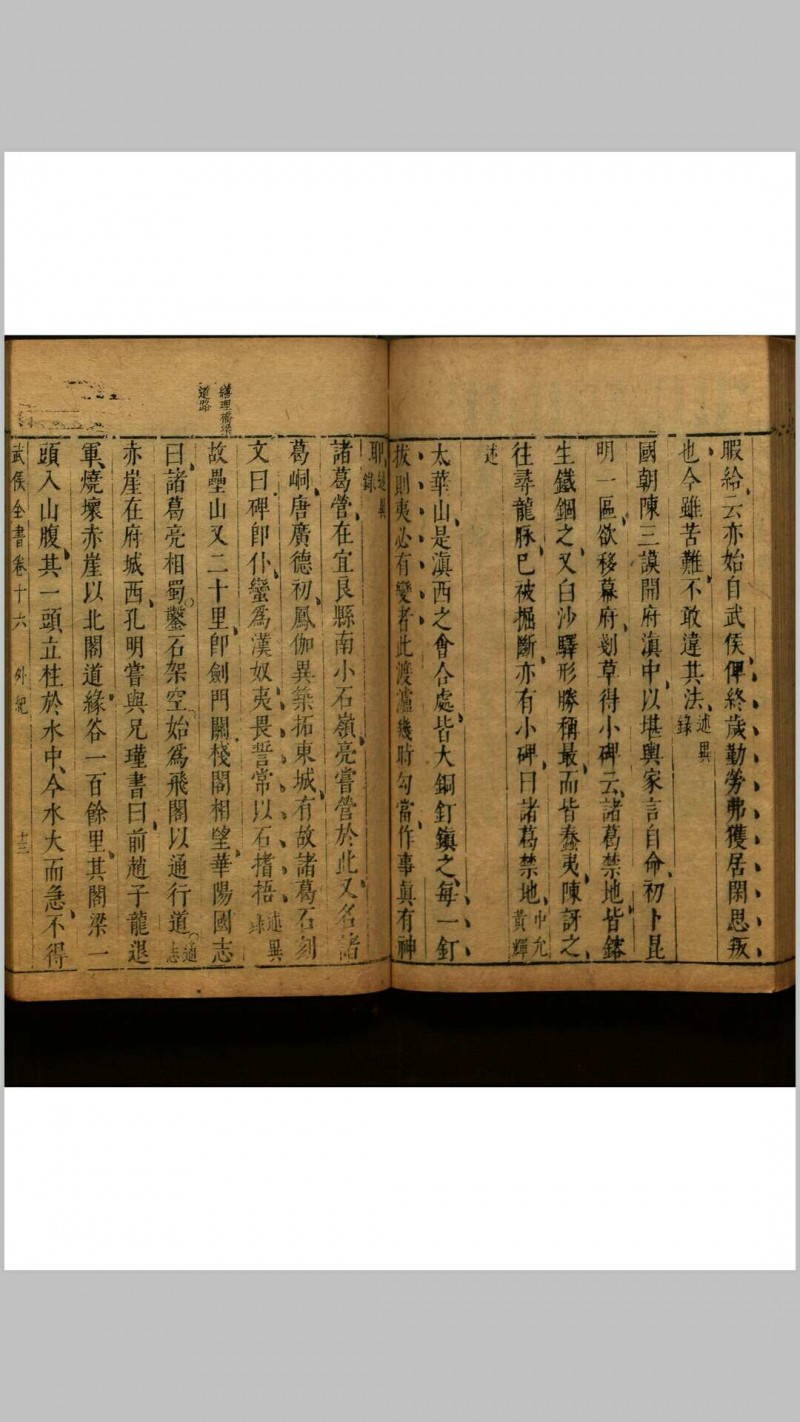 暇給云亦始自武侯俾終歲勤勞弗獲居閑思叛
也今雖苦難不敢違其法述異錄
國朝陳三謨開府滇中以堪輿家言自命初卜昆
明一區欲移幕府剗草得小碑云諸葛禁地皆鎔
生鐵錮之又白沙驛形勝稱最而皆蠢夷陳訝之
往尋龍脉已被掘斷亦有小碑曰諸葛禁地中允黃輝
述
太華山是滇西之會合處皆大銅釘鎮之每一釘
拔則夷必有變者此渡瀘幾時勾當作事真有神
耶述異錄
諸葛營在宜良縣南小石嶺亮嘗營於此又名諸
葛峒唐廣德初鳳伽異築拓東城有故諸葛石刻
文曰碑卽仆蠻爲漢奴夷畏誓常以石搘捂述異錄
繕理橋梁
道路
故壘山又二十里卽劍門關棧閣相望華陽國志
曰諸葛亮相蜀鑿石架空始爲飛閣以通行道通志
赤崖在府城西孔明嘗與兄瑾書曰前趙子龍退
軍燒壞赤崖以北閣道緣谷一百餘里其閣梁一
頭入山腹其一頭立柱於水中今水大而急不得
武侯全書卷十六 外紀 十三